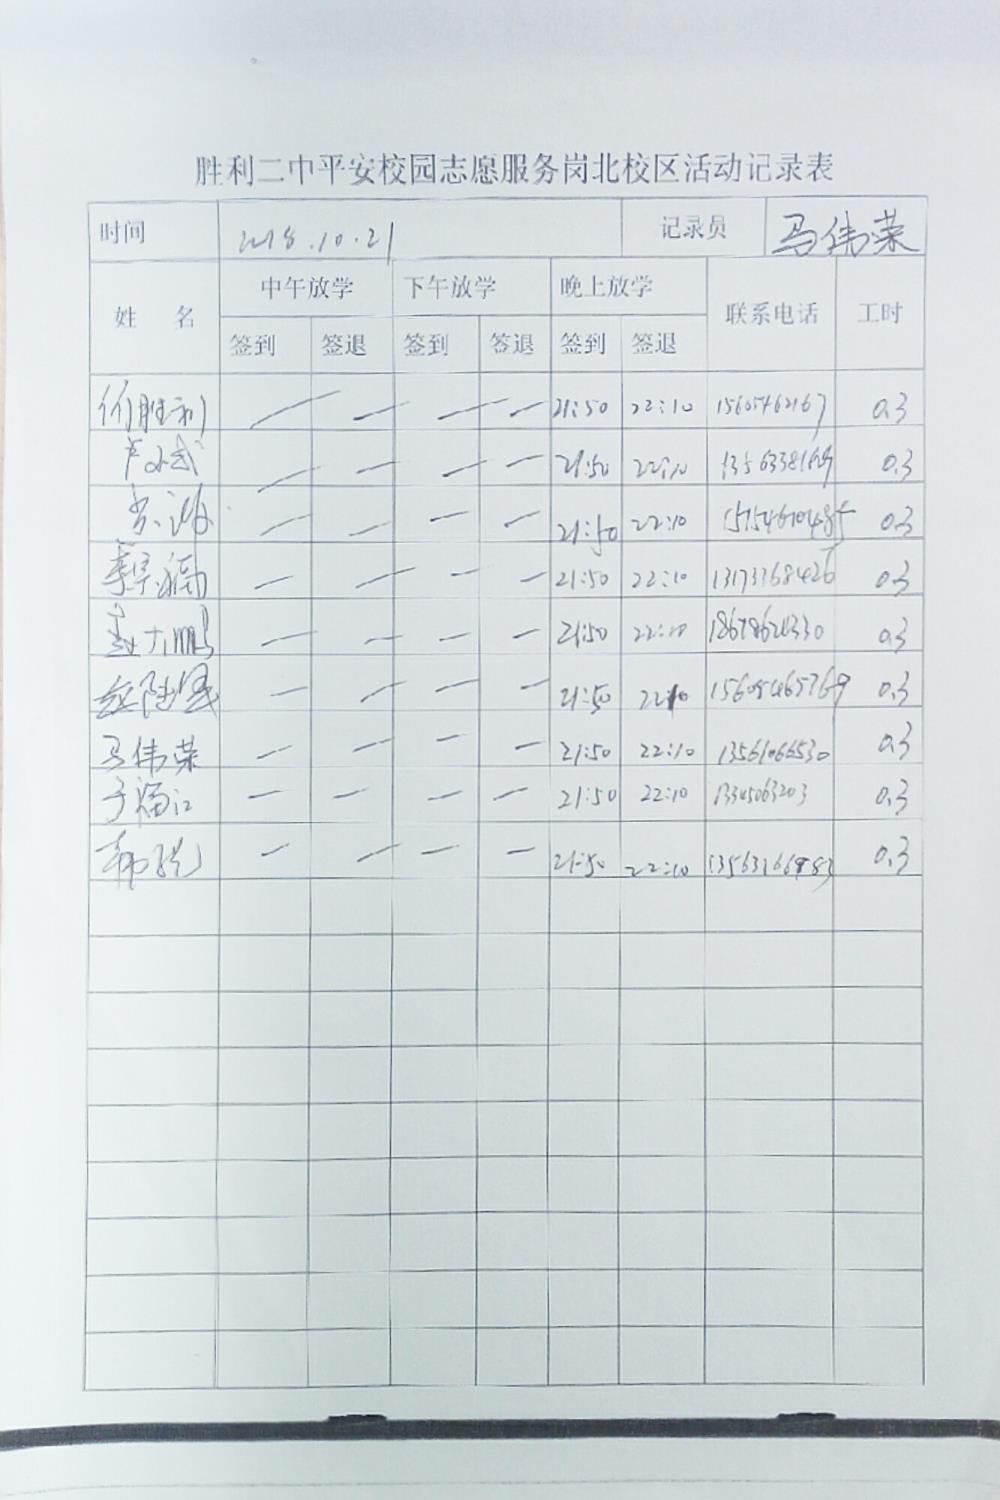 胜利二中平安校园志愿服务岗北校区活动记录表
时间 2018.10.21 记录员 马伟荣
姓 名 中午放学 下午放学 晚上放学 联系电话 工时
签到 签退 签到 签退 签到 签退
胜利 — — — — 21:50 22:10 15605462167 0.3
— — — — 21:50 22:10 0.3
— — — — 21:50 22:10 15154610485 0.3
— — — — 21:50 22:10 13173368426 0.3
— — — — 21:50 22:10 18678624330 0.3
— — — — 21:50 22:10 15605465769 0.3
马伟荣 — — — — 21:50 22:10 13561066530 0.3
于福江 — — — — 21:50 22:10 13345063203 0.3
— — — — 21:50 22:10 0.3